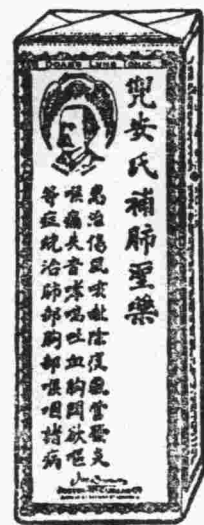 DOAN'S LUNG TONIC
兜安氏補肺聖藥
專治傷風咳嗽除痰氣管發炎
喉痛失音哮喘吐血胸悶欲嘔
等症統治肺部胸部喉咽諸病
FOSTER-McCLELLAN CO.